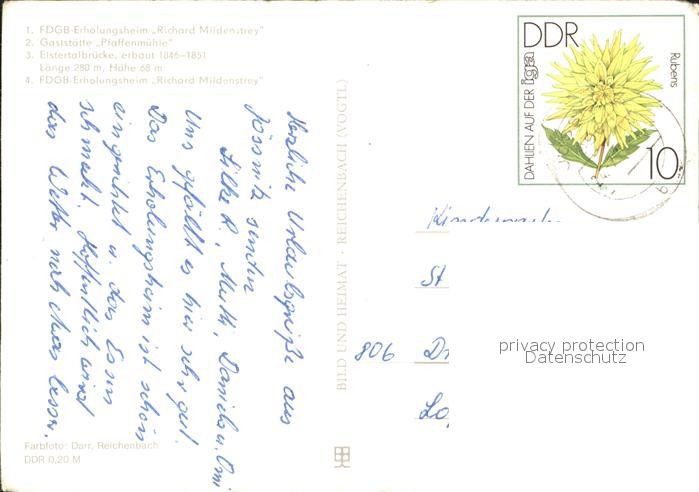 1. FDGB-Erholungsheim „Richard Mildenstrey"
2. Gaststätte „Pfaffenmühle"
3. Elstertalbrücke, erbaut 1846–1851
Länge 280 m, Höhe 68 m
4. FDGB-Erholungsheim „Richard Mildenstrey"
Herzliche Urlaubsgrüße aus
Jössnitz senden
Silke R., Mutti, Daniela u. Omi
Uns gefällt es hier sehr gut.
Das Erholungsheim ist schön
eingerichtet u. das Essen
schmeckt. Hoffentlich wird
das Wetter noch etwas besser.
Farbfoto: Darr, Reichenbach
DDR 0,20 M
BILD UND HEIMAT · REICHENBACH (VOGTL)
DDR
DAHLIEN AUF DER iga
Rubens
10
St
806 Dr
privacy protection
Datenschutz